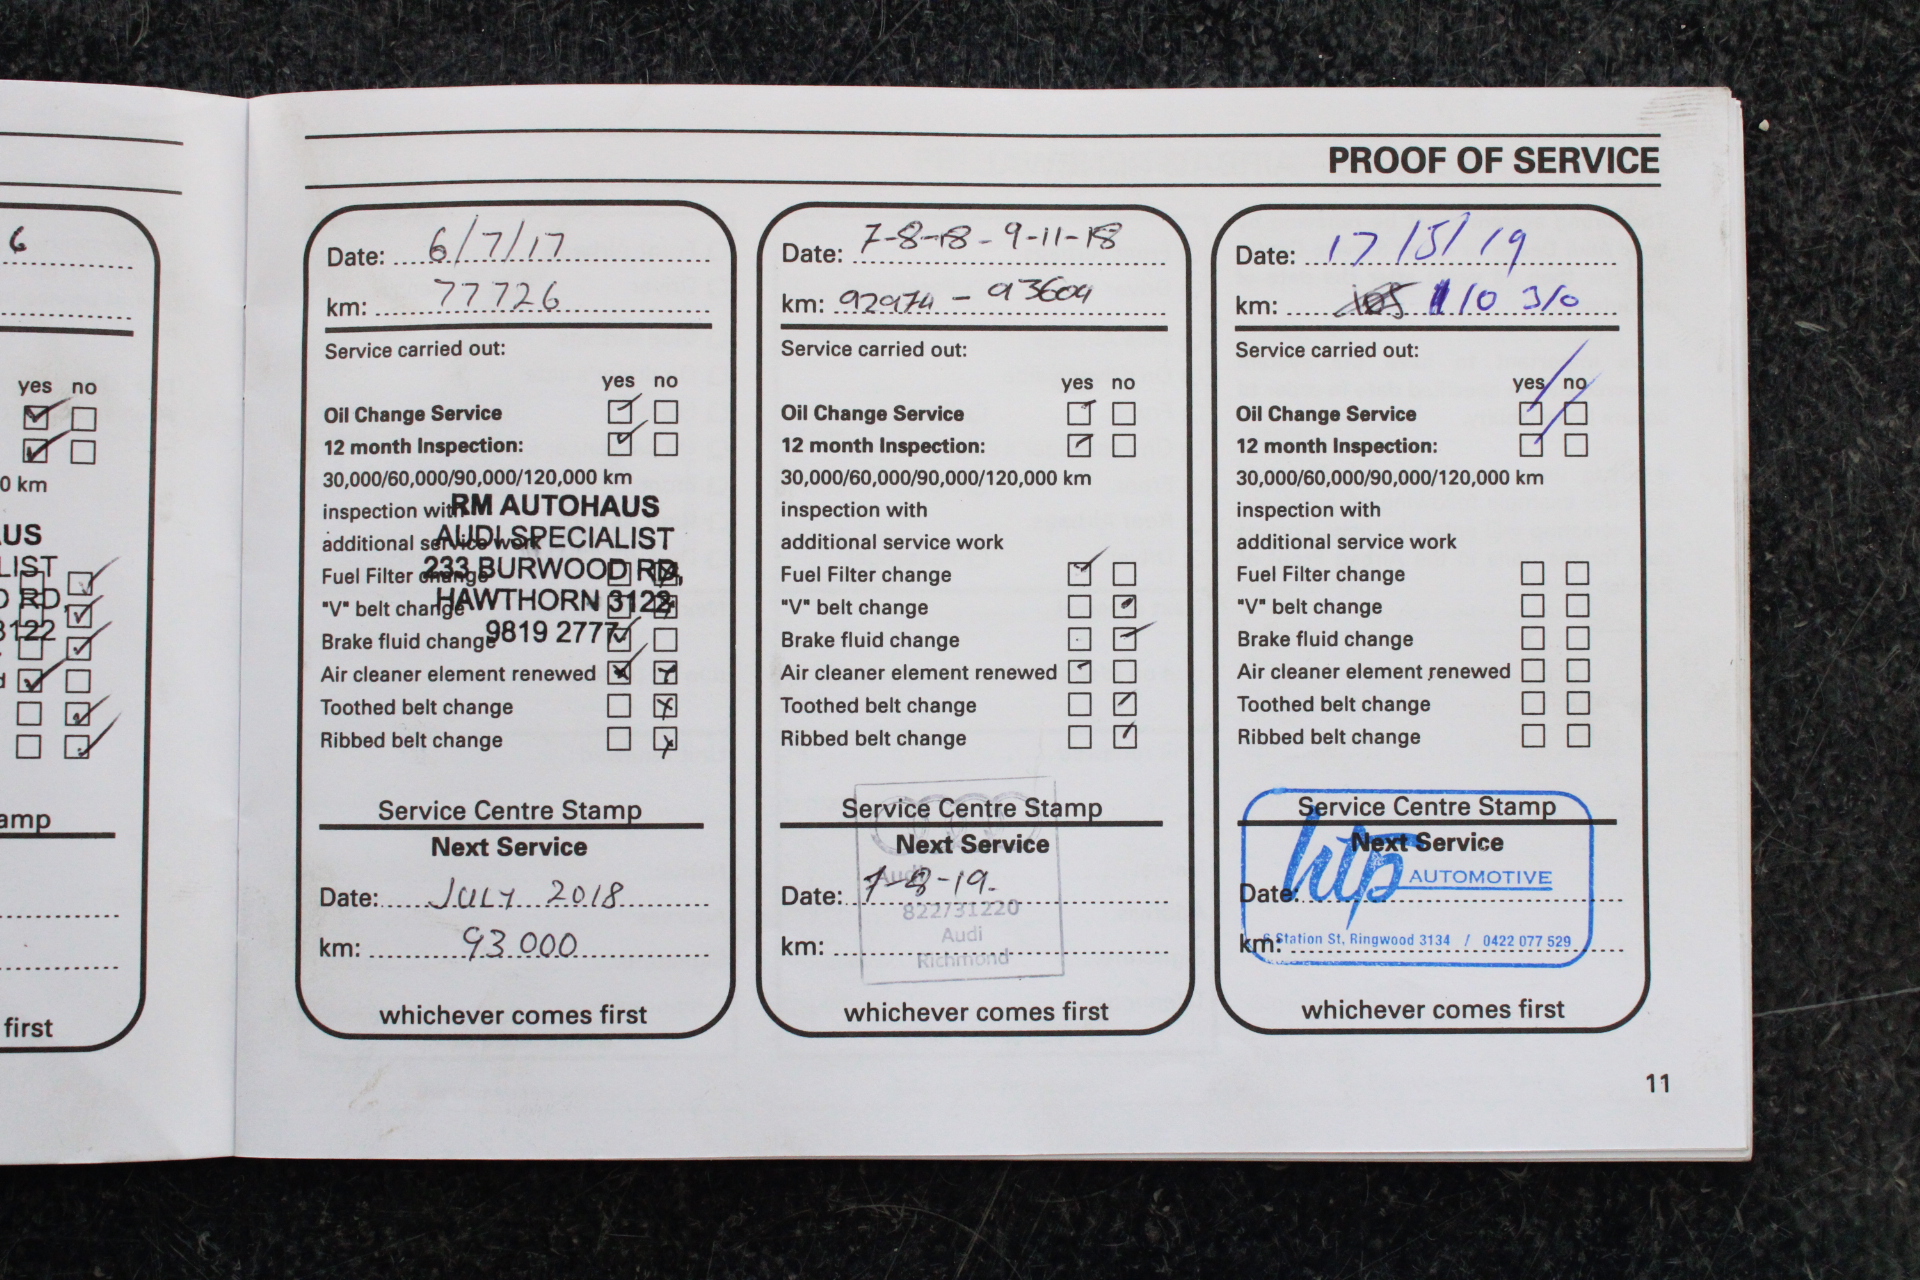 6
yes no
0 km
AUS
LIST
D RD,
3122
d
amp
first
PROOF OF SERVICE
Date: 6/7/17
km: 77726
Service carried out:
yes no
Oil Change Service
12 month Inspection:
30,000/60,000/90,000/120,000 km
inspection with
additional service work
Fuel Filter change
"V" belt change
Brake fluid change
Air cleaner element renewed
Toothed belt change
Ribbed belt change
RM AUTOHAUS
AUDI SPECIALIST
233 BURWOOD RD,
HAWTHORN 3122
9819 2777
Service Centre Stamp
Next Service
Date: JULY 2018
km: 93 000
whichever comes first
Date: 7-8-18 - 9-11-18
km: 92974 - 93604
Service carried out:
yes no
Oil Change Service
12 month Inspection:
30,000/60,000/90,000/120,000 km
inspection with
additional service work
Fuel Filter change
"V" belt change
Brake fluid change
Air cleaner element renewed
Toothed belt change
Ribbed belt change
Service Centre Stamp
Next Service
Date: 7-8-19.
km:
Audi
822/31220
Audi
Richmond
whichever comes first
Date: 17/5/19
km: 110 310
Service carried out:
yes no
Oil Change Service
12 month Inspection:
30,000/60,000/90,000/120,000 km
inspection with
additional service work
Fuel Filter change
"V" belt change
Brake fluid change
Air cleaner element renewed
Toothed belt change
Ribbed belt change
Service Centre Stamp
Next Service
Date:
km:
htp AUTOMOTIVE
6 Station St, Ringwood 3134 / 0422 077 529
whichever comes first
11